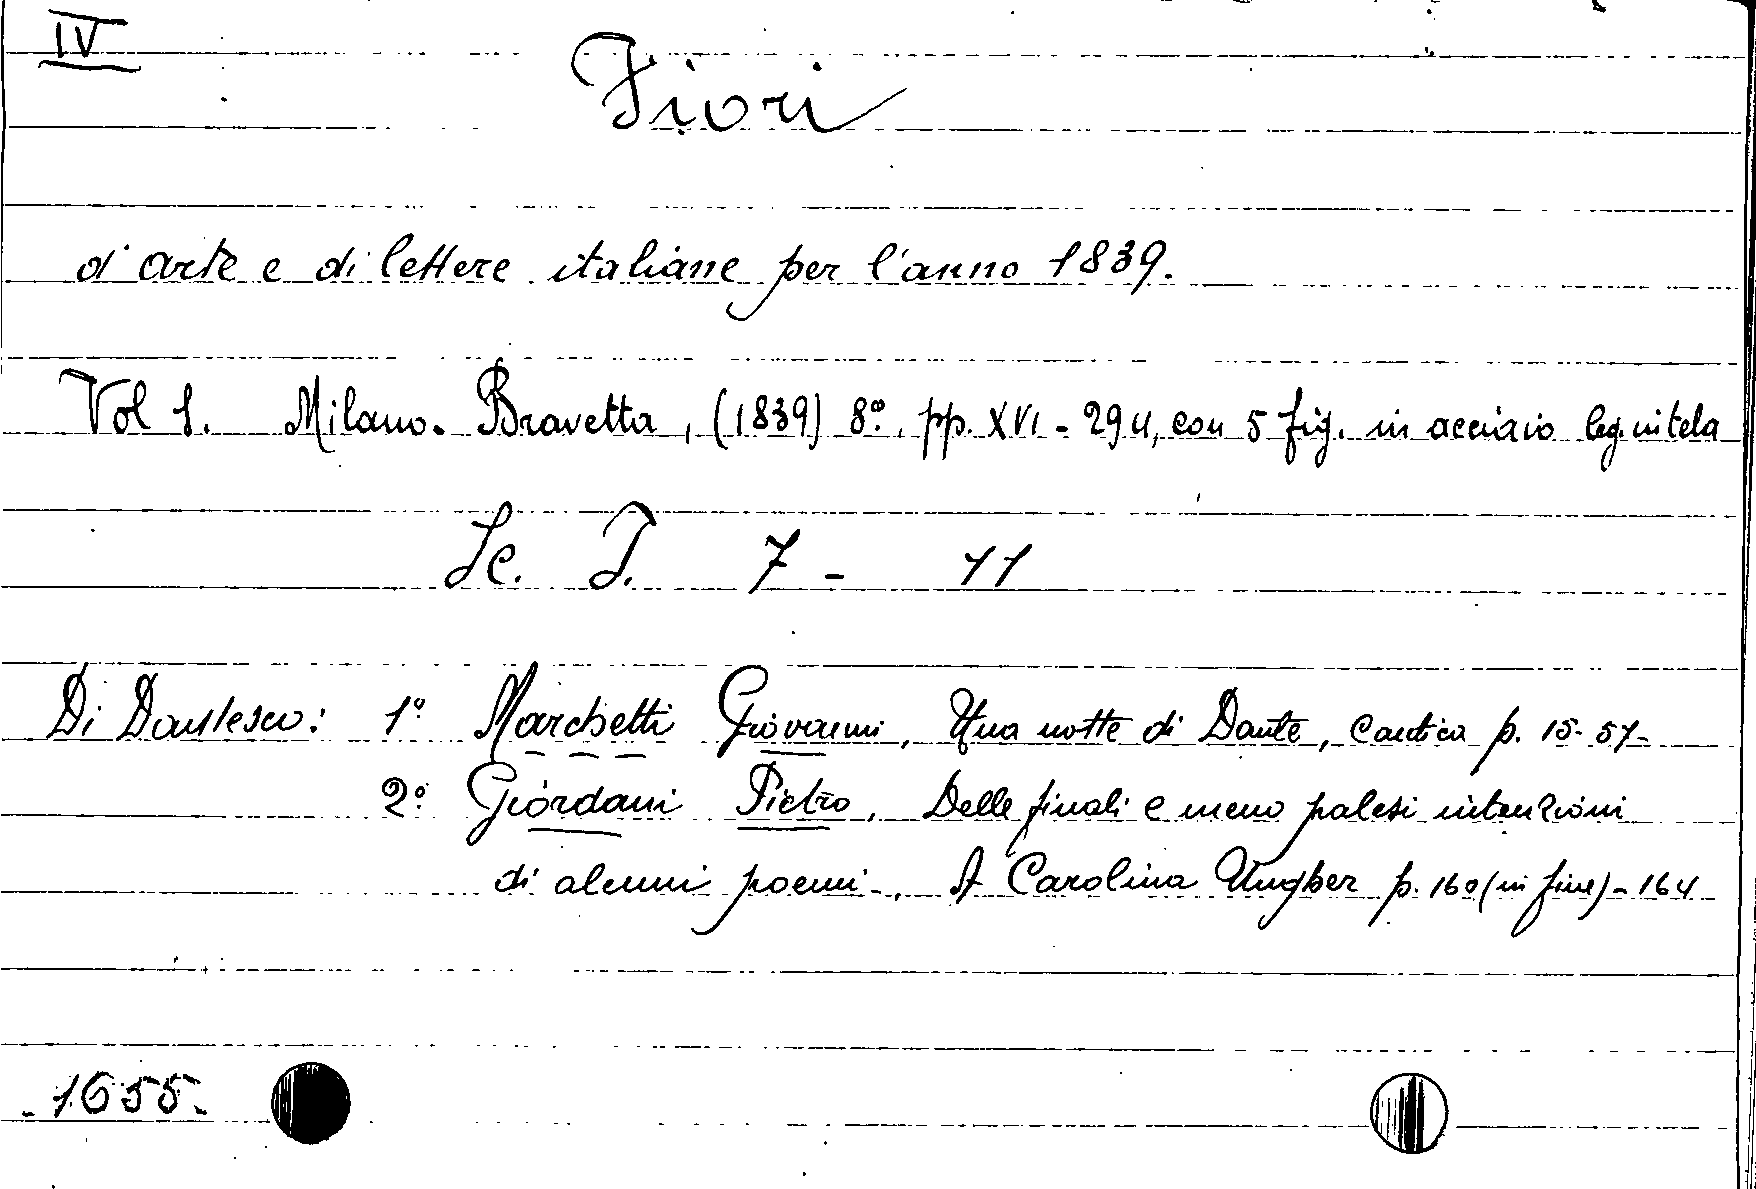 IV
Fiori
d'arte e di lettere italiane per l'anno 1839.
Vol 1. Milano. Bravetta, (1839) 8º. pp. XVI - 294, con 5 fig. in acciaio leg. in tela
Sc. I. 7 - 11
Di Dantesco: 1º Marchetti Giovanni, Una notte di Dante, Cantica p. 15-57-
2º Giordani Pietro, Delle finali e meno palesi intenzioni
di alcuni poemi. A Carolina Ungher p. 160 (in fine) - 164
1655.